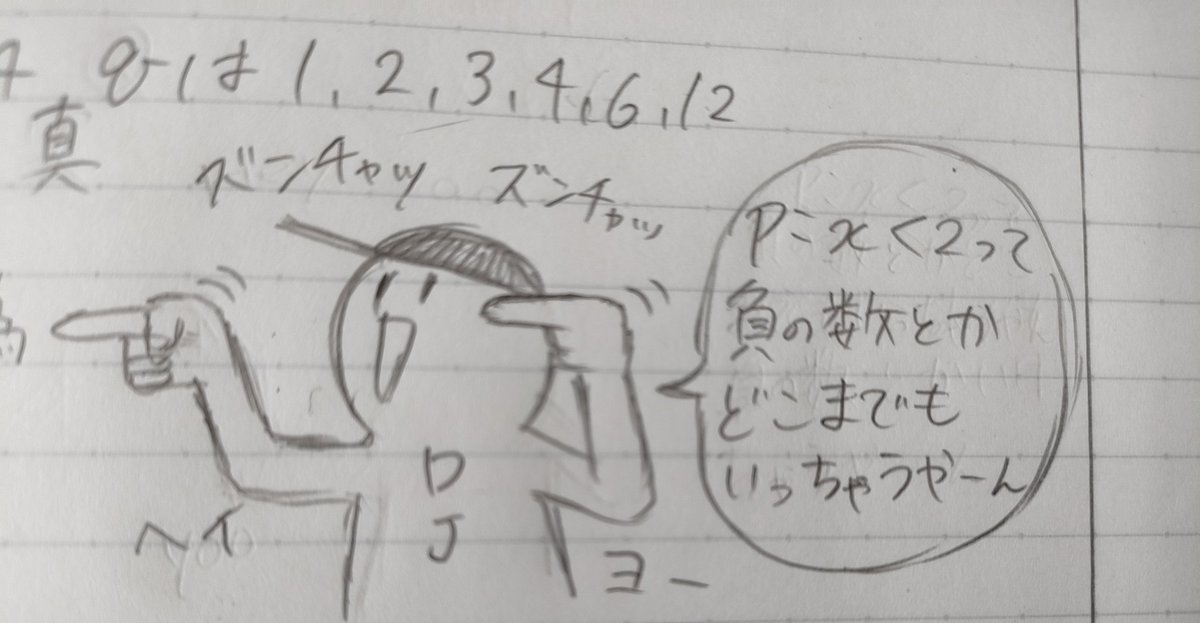 qは 1, 2, 3, 4, 6, 12
真
ズンチャッ ズンチャッ
P:x<2って
負の数とか
どこまでも
いっちゃうやーん
DJ
ヘイ
ヨー